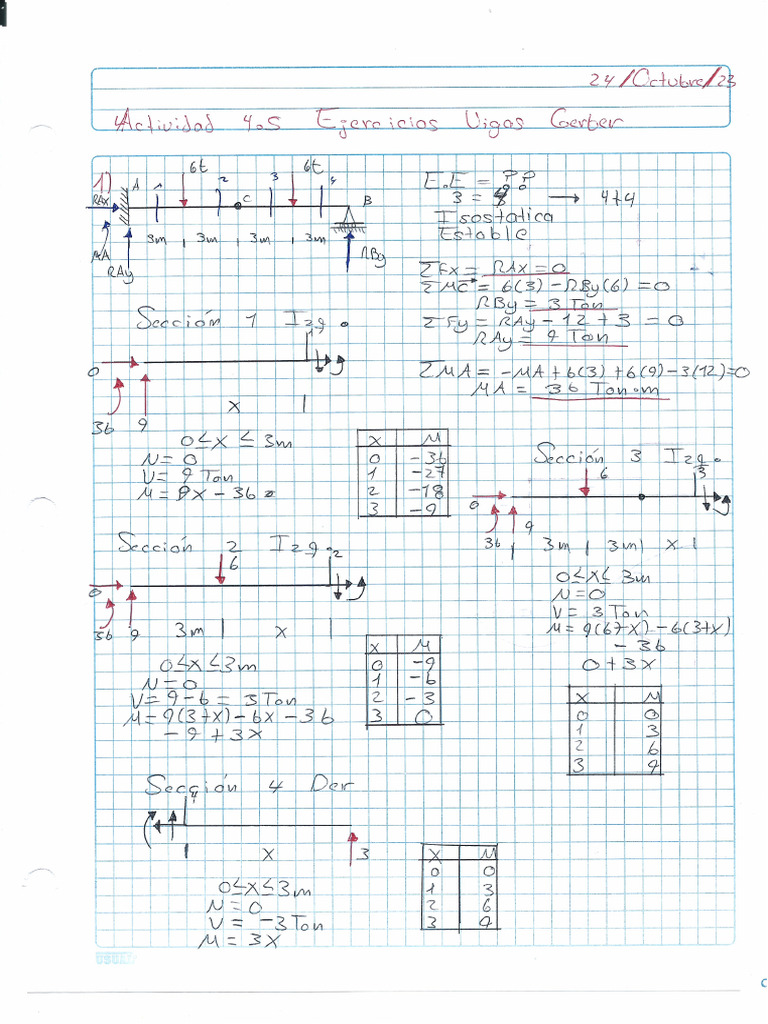 24/Octubre/23
Actividad 4.5 Ejercicios Vigas Gerber
1)
RAx
A
1
6t
2
C
3
6t
4
B
3m, 3m, 3m, 3m
MA
RAy
RBy
E.E = P.P
3 = → 4+4
Isostatica
Estable
ΣFx = RAX = 0
ΣMC = 6(3) - RBy(6) = 0
RBy = 3 Ton
ΣFy = RAy - 12 + 3 = 0
RAy = 9 Ton
ΣMA = -MA + 6(3) + 6(9) - 3(12) = 0
MA = 36 Ton·m
Sección 1 Izq.
1
0
36
9
x
0 ≤ x ≤ 3m
N = 0
V = 9 Ton
M = 9x - 36
x M
0 -36
1 -27
2 -18
3 -9
Sección 2 Izq.
2
6
0
36 9
3m x
0 ≤ x ≤ 3m
N = 0
V = 9 - 6 = 3 Ton
M = 9(3+x) - 6x - 36
- 9 + 3x
x M
0 -9
1 -6
2 -3
3 0
Sección 3 Izq.
3
6
0
36
9
3m 3m x
0 ≤ x ≤ 3m
N = 0
V = 3 Ton
M = 9(6+x) - 6(3+x)
- 36
0 + 3x
x M
0 0
1 3
2 6
3 9
Sección 4 Der
4
x
3
0 ≤ x ≤ 3m
N = 0
V = -3 Ton
M = 3x
x M
0 0
1 3
2 6
3 9